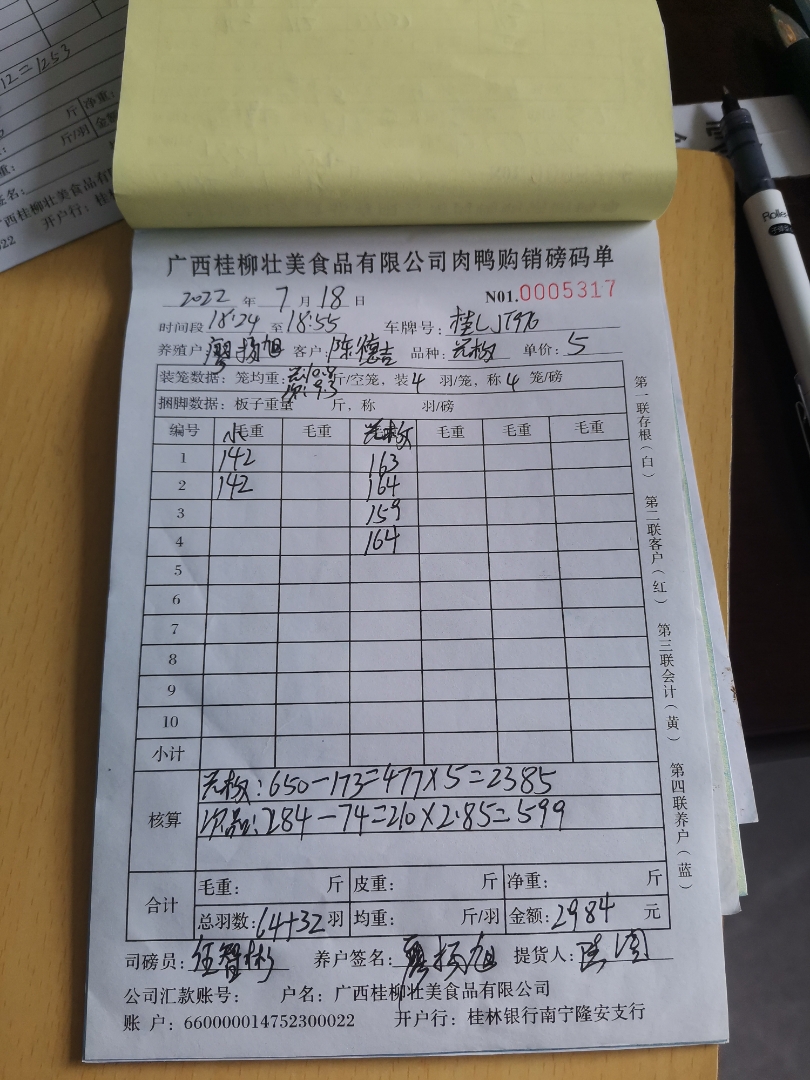 12=1253
斤 净重:
斤/羽 金额
签名:
广西桂柳壮美食品有限
0022 开户行: 桂
广西桂柳壮美食品有限公司肉鸭购销磅码单
2022 年 7 月 18 日 N01.0005317
时间段 18:24 至 18:55 车牌号: 桂LJT976
养殖户 廖扬旭 客户: 陈德吉 品种: 花板 单价: 5
装笼数据: 笼均重: 花:10.8 次:9.3 斤/空笼, 装 4 羽/笼, 称 4 笼/磅
捆脚数据: 板子重量 斤, 称 羽/磅
编号 毛重 毛重 花板 毛重 毛重 毛重
1 142 163
2 142 164
3 159
4 164
5
6
7
8
9
10
小计
核算
花板: 650-173=477×5=2385
次品: 284-74=210×2.85=599
合计
毛重: 斤 皮重: 斤 净重: 斤
总羽数: 64+32 羽 均重: 斤/羽 金额: 2984 元
司磅员: 伍智彬 养户签名: 廖扬旭 提货人:
公司汇款账号: 户名: 广西桂柳壮美食品有限公司
账 户: 660000014752300022 开户行: 桂林银行南宁隆安支行
第一联存根(白) 第二联客户(红) 第三联会计(黄) 第四联养户(蓝)
Rolle